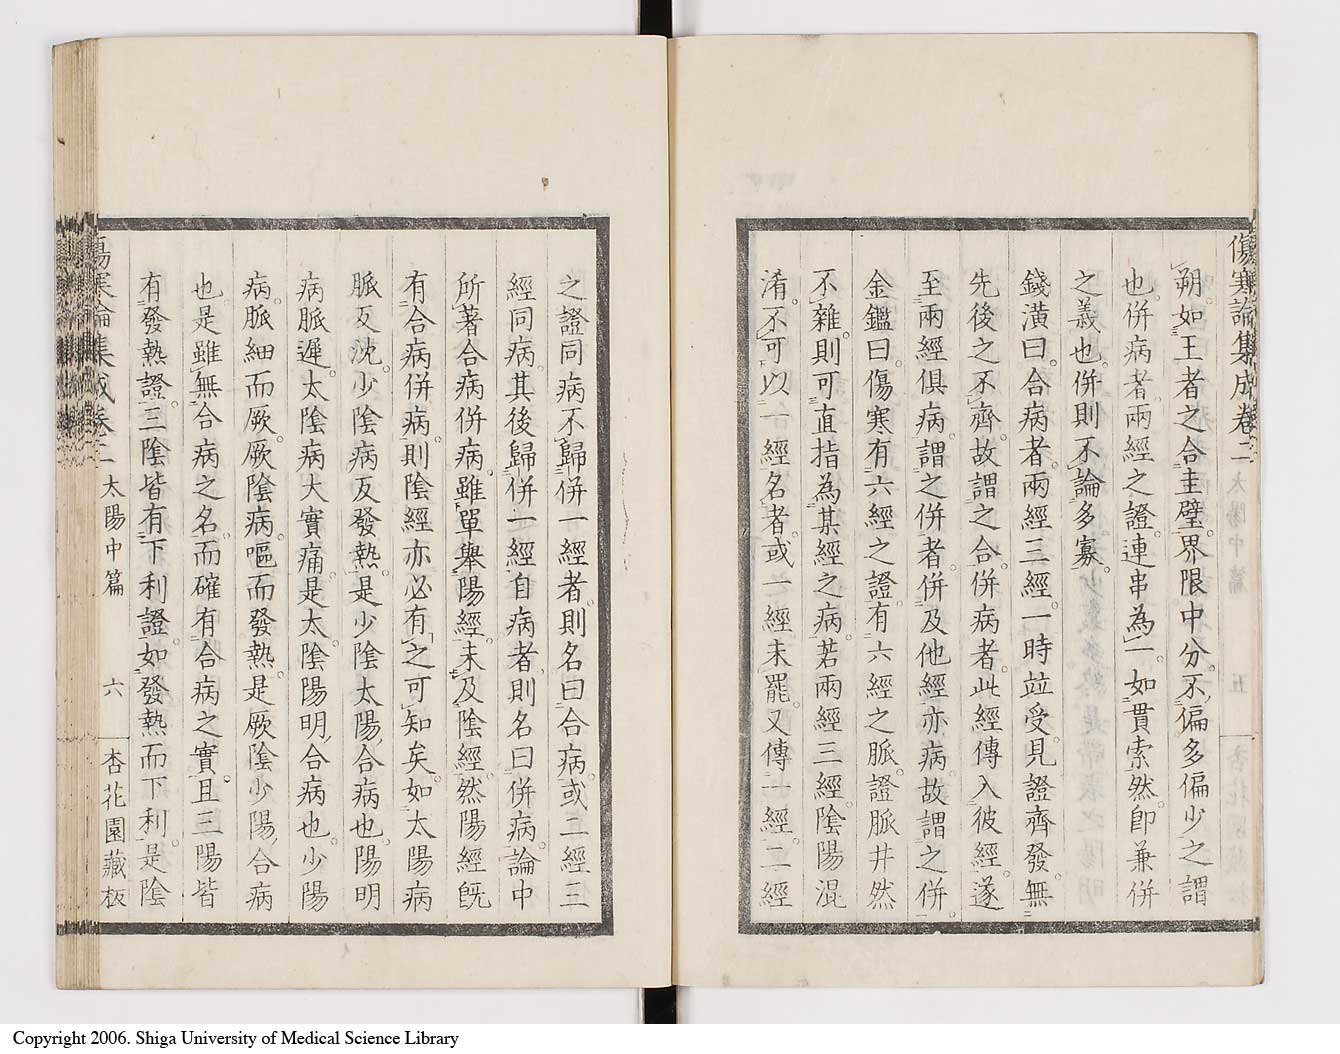 傷寒論集成卷二 太陽中篇 五 杏花園藏板
朔。如王者之合圭璧。界限中分。不偏多偏少之謂
也。併病者兩經之證。連串為一。如貫索然。卽兼併
之義也。併則不論多寡。
錢潢曰。合病者。兩經三經。一時竝受。見證齊發。無
先後之不齊。故謂之合。併病者。此經傳入彼經。遂
至兩經俱病。謂之併者。併及他經亦病。故謂之併。
金鑑曰。傷寒有六經之證。有六經之脈。證脈井然
不雜。則可直指為某經之病。若兩經三經。陰陽混
淆。不可以一經名者。或一經未罷。又傳二經。二經
之證同病。不歸併一經者。則名曰合病。或二經三
經同病。其後歸併一經自病者。則名曰併病。論中
所著合病併病。雖單舉陽經。未及陰經。然陽經旣
有合病併病。則陰經亦必有之可知矣。如太陽病
脈反沈。少陰病反發熱。是少陰太陽合病也。陽明
病脈遲。太陰病大實痛。是太陰陽明合病也。少陽
病。脈細而厥。厥陰病。嘔而發熱。是厥陰少陽合病
也。是雖無合病之名。而確有合病之實。且三陽皆
有發熱證。三陰皆有下利證。如發熱而下利。是陰
傷寒論集成卷二 太陽中篇 六 杏花園藏板
Copyright 2006. Shiga University of Medical Science Library